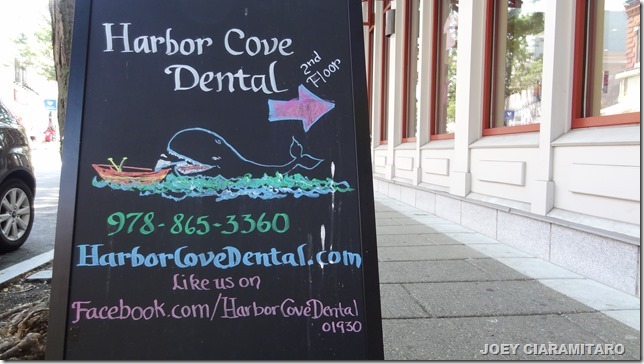 Harbor Cove
Dental
2nd
Floor
978-865-3360
HarborCoveDental.com
Like us on
Facebook.com/HarborCoveDental
01930
JOEY CIARAMITARO